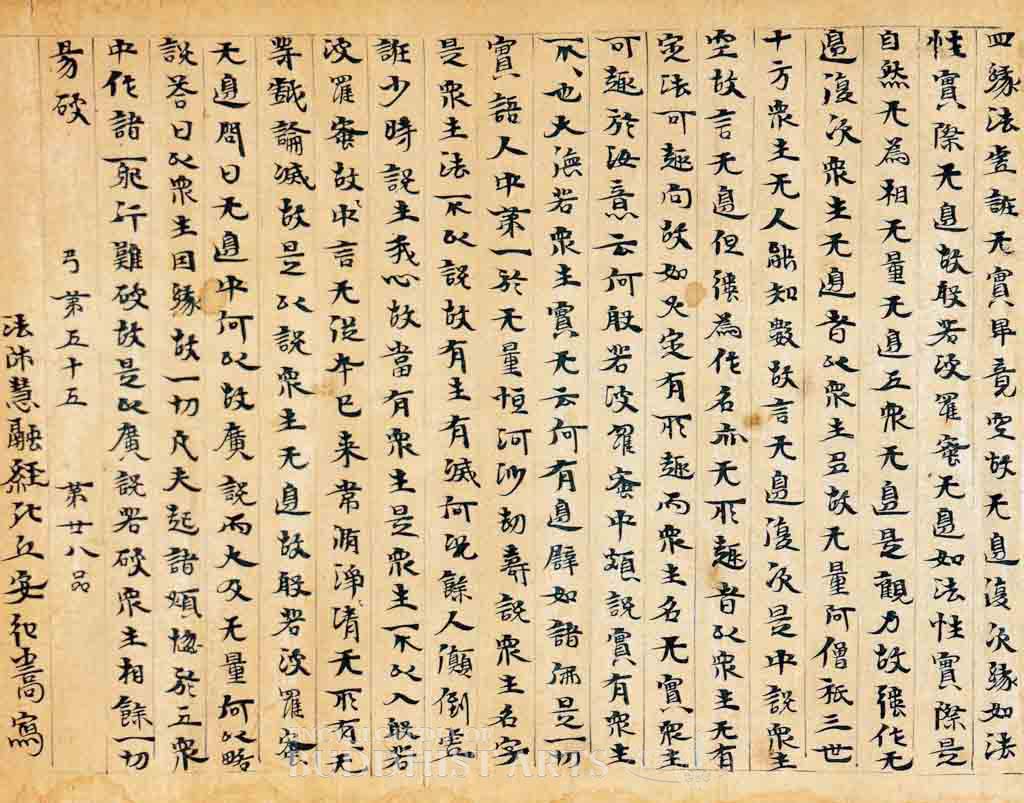 四緣法虛誑无實畢竟空故无邊復次緣如法
性實際无邊故般若波羅蜜无邊如法性實際是
自然无為相无量无邊五衆无邊是觀力故强作无
邊復次衆生无邊者以衆生多故无量阿僧祇三世
十方衆生无人能知數故言无邊復次是中說衆生
空故言无邊但彊為作名亦无所趣者以衆生无有
定法可趣向故如火定有所趣而衆生名无實衆生
可趣於汝意云何般若波羅蜜中頗說實有衆生
不不也大德若衆生實无云何有邊辟如諸佛是一切
實語人中第一於无量恒河沙劫壽說衆生名字
是衆生法不以說故有生有滅何況餘人顛倒虛
誑少時說生我心故當有衆生是衆生不以入般若
波羅蜜故中言无從本已来常淨清无所有无
等戲論滅故是以說衆生无邊故般若波羅蜜
无邊問曰无邊中何以故廣說而大及无量何以略
說荅曰以衆生因緣故一切凡夫起諸煩惱於五衆
中作諸邪行難破故是以廣說若破衆生相餘一切
易破
弓第五十五 第廿八品
法師慧融經比丘安弘嵩寫
ENCYCLOPEDIA OF
BUDDHIST ARTS